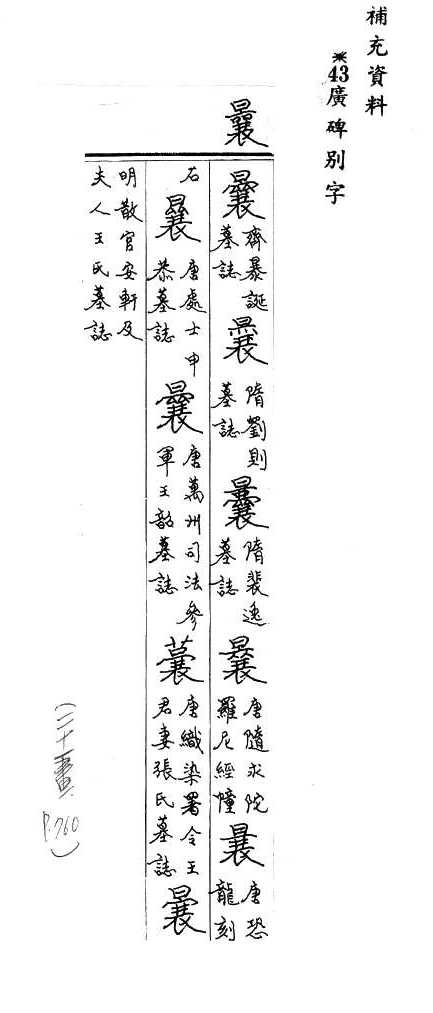 補充資料
※43廣碑別字
曩
曩 齊暴誕墓誌
曩 隋劉則墓誌
曩 隋裴逸墓誌
曩 唐隨求陀羅尼經幢
曩 唐恐龍刻石
曩 唐處士申恭墓誌
曩 唐萬州司法參軍王韶墓誌
曩 唐織染署令王君妻張氏墓誌
曩 明散官安軒及夫人王氏墓誌
(二十一畫. P.760)